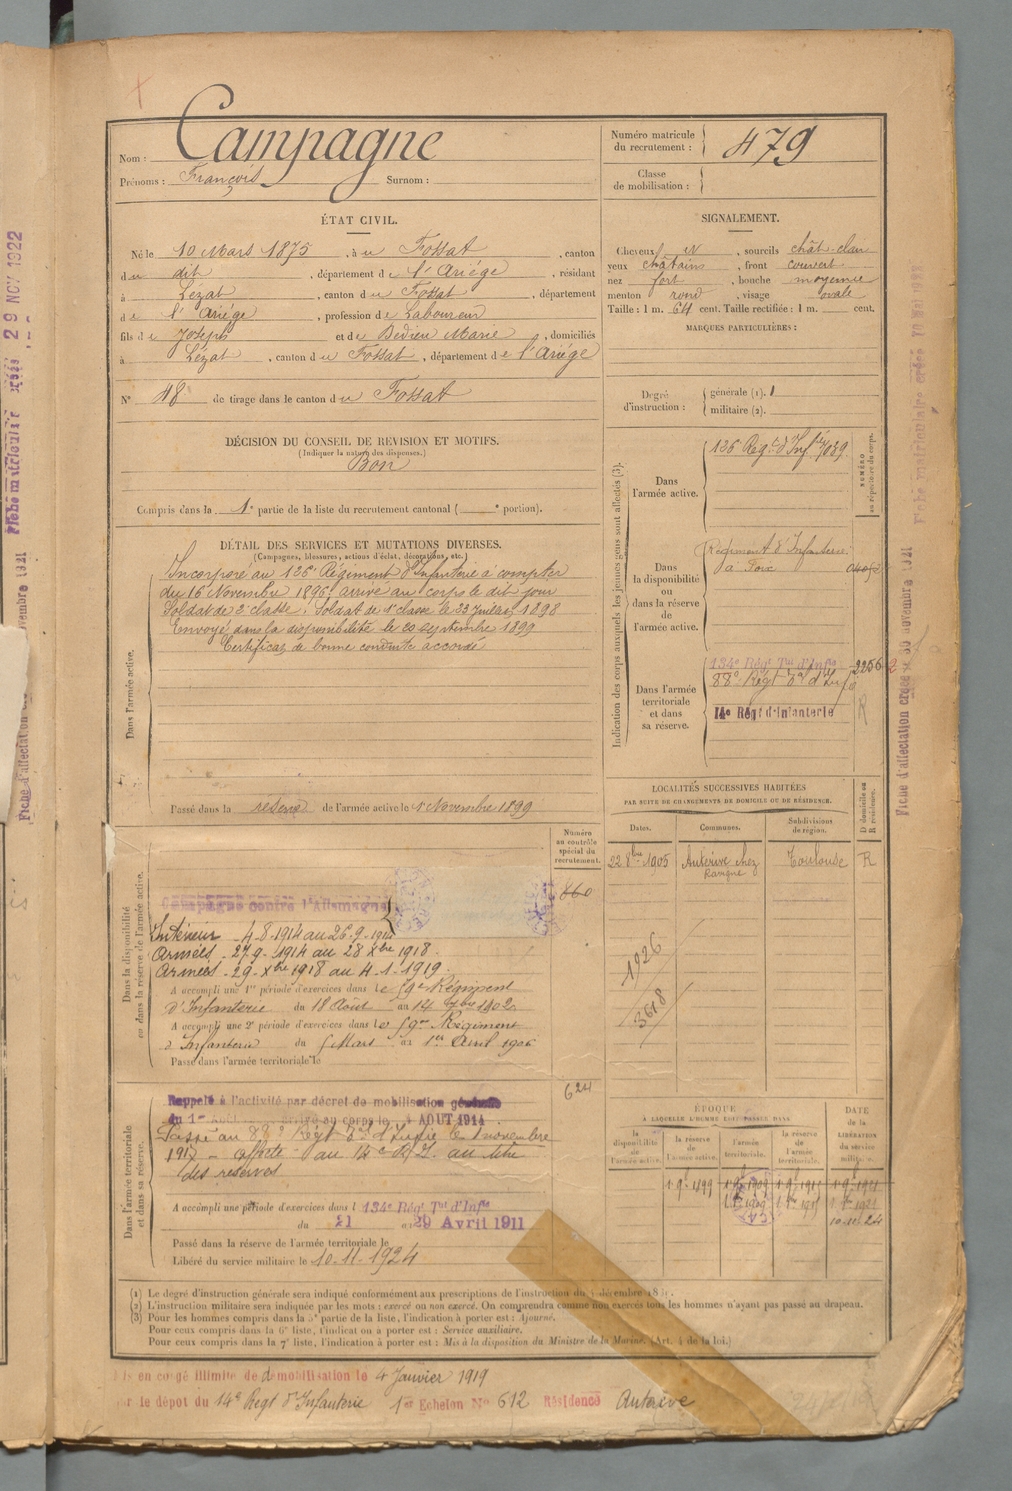 Campagne
Nom :
Prénoms : François Surnom :
Numéro matricule du recrutement : 479
Classe de mobilisation :
ÉTAT CIVIL.
Né le 10 Mars 1875, à u Fossat, canton
du dit, département de l'Ariége, résidant
à Lézat, canton du Fossat, département
de l'Ariége, profession de Laboureur
fils de Joseph et de Bédieu Marie, domiciliés
à Lézat, canton du Fossat, département de l'Ariége
N° 48 de tirage dans le canton du Fossat
DÉCISION DU CONSEIL DE REVISION ET MOTIFS.
(Indiquer la nature des dispenses.)
Bon
Compris dans la 1e partie de la liste du recrutement cantonal ( e portion).
DÉTAIL DES SERVICES ET MUTATIONS DIVERSES.
(Campagnes, blessures, actions d'éclat, décorations, etc.)
Dans l'armée active.
Incorporé au 126e Régiment d'Infanterie à compter
du 16 Novembre 1896, arrivé au corps le dit jour
Soldat de 2e classe. Soldat de 1e classe le 23 Juillet 1898
Envoyé dans la disponibilité le 20 septembre 1899
Certificat de bonne conduite accordé
Passé dans la réserve de l'armée active le 1 Novembre 1899
Numéro au contrôle spécial du recrutement.
860
Dans la disponibilité ou dans la réserve de l'armée active.
Campagne contre l'Allemagne
Intérieur - 4-8-1914 au 26-9-1914
Armées - 27-9-1914 au 28 Xbre 1918.
Armées - 29-Xbre 1918 au 4-1-1919.
A accompli une 1re période d'exercices dans le 59e Régiment
d'Infanterie du 18 Août au 14 7bre 1902
A accompli une 2e période d'exercices dans le 59me Régiment
d'Infanterie du 5 Mars au 1er Avril 1906
Passé dans l'armée territoriale le
624
Dans l'armée territoriale et dans sa réserve.
Rappelé à l'activité par décret de mobilisation générale
du 1er Août arrivé au corps le 4 AOUT 1914
Passé au 88e Régt Tal d'Infie le 1 novembre
1917 - affecté au 14e R.I. au titre
des réserves
A accompli une période d'exercices dans l 134e Régt Tal d'Infie
du 21 au 29 Avril 1911
Passé dans la réserve de l'armée territoriale le
Libéré du service militaire le 10-11-1924
SIGNALEMENT.
Cheveux N, sourcils chât-clair
yeux châtains, front couvert
nez fort, bouche moyenne
menton rond, visage ovale
Taille : 1 m. 64 cent. Taille rectifiée : 1 m. cent.
MARQUES PARTICULIÈRES :
Degré d'instruction : générale (1). 1
militaire (2).
Indication des corps auxquels les jeunes gens sont affectés (3).
NUMÉRO au répertoire du corps.
Dans l'armée active.
126 Régt d'Infie 7039
Dans la disponibilité ou dans la réserve de l'armée active.
Régiment d'Infanterie
à Foix
Dans l'armée territoriale et dans sa réserve.
134e Régt Tal d'Infie 2256
88e Régt Tal d'Infie
14e Régt d'Infanterie
R
LOCALITÉS SUCCESSIVES HABITÉES
PAR SUITE DE CHANGEMENTS DE DOMICILE OU DE RÉSIDENCE.
Dates. Communes. Subdivisions de région. D domicile ou R résidence.
22 8bre 1905 Auterive chez Toulouse R
1926
3618
ÉPOQUE
À LAQUELLE L'HOMME DOIT PASSER DANS
la disponibilité de l'armée active. la réserve de l'armée active. l'armée territoriale. la réserve de l'armée territoriale. DATE de la LIBÉRATION du service militaire.
1 9bre 1899 1 9bre 1909 1 9bre 1915 1 9bre 1921
10-11-24
(1) Le degré d'instruction générale sera indiqué conformément aux prescriptions de l'instruction du décembre
(2) L'instruction militaire sera indiquée par les mots : exercé ou non exercé. On comprendra comme non exercés tous les hommes n'ayant pas passé au drapeau.
(3) Pour les hommes compris dans la 5e partie de la liste, l'indication à porter est : Ajourné.
Pour ceux compris dans la 6e liste, l'indication à porter est : Service auxiliaire.
Pour ceux compris dans la 7e liste, l'indication à porter est : Mis à la disposition du Ministre de la Marine. (Art. 4 de la loi.)
en congé illimité de démobilisation le 4 Janvier 1919
le dépot du 14e Régt d'Infanterie 1er Echelon No 612 Résidence Auterive
Fiche matriculaire créée 29 NOV 1922
Fiche d'affectation créée 30 novembre 1921